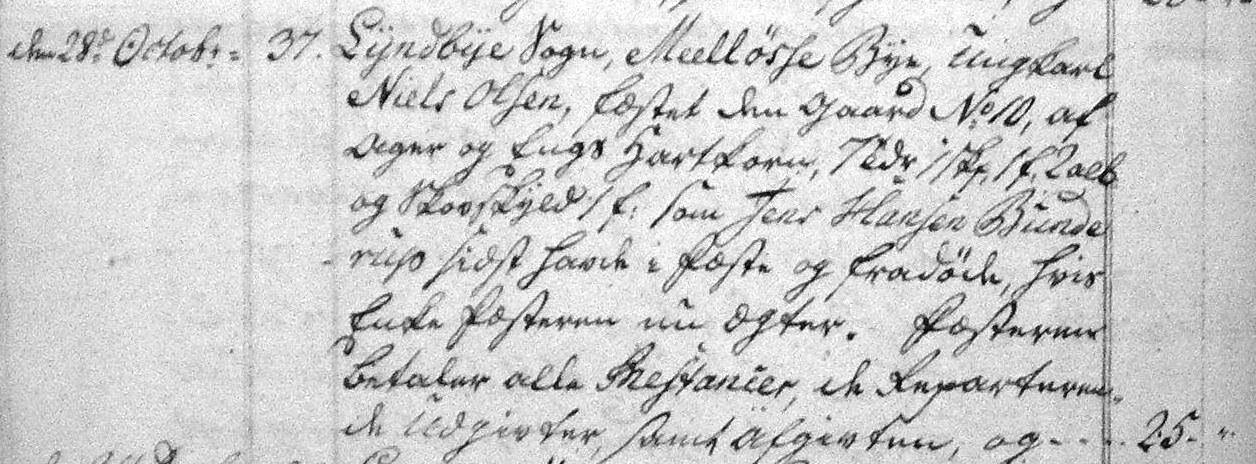 den 28de Octobr = 37. Lyndbÿe Sogn, Meelløsse Bÿe, Ungkarl
Niels Olsen, fæstet den Gaard No 10, af
Ager og Engs Hartkorn, 7 Tdr 1 Skp 1 f. 2 alb
og Skovskÿld 1 f: som Jens Hansen Bunde
rup sidst havde i Fæste og fradøde, hvis
Enke Fæsteren nu ægter. Fæsteren
betaler alle Restancer, de Reparteren-
de Udgivter, samt Afgivten, og - - - - 25 - "